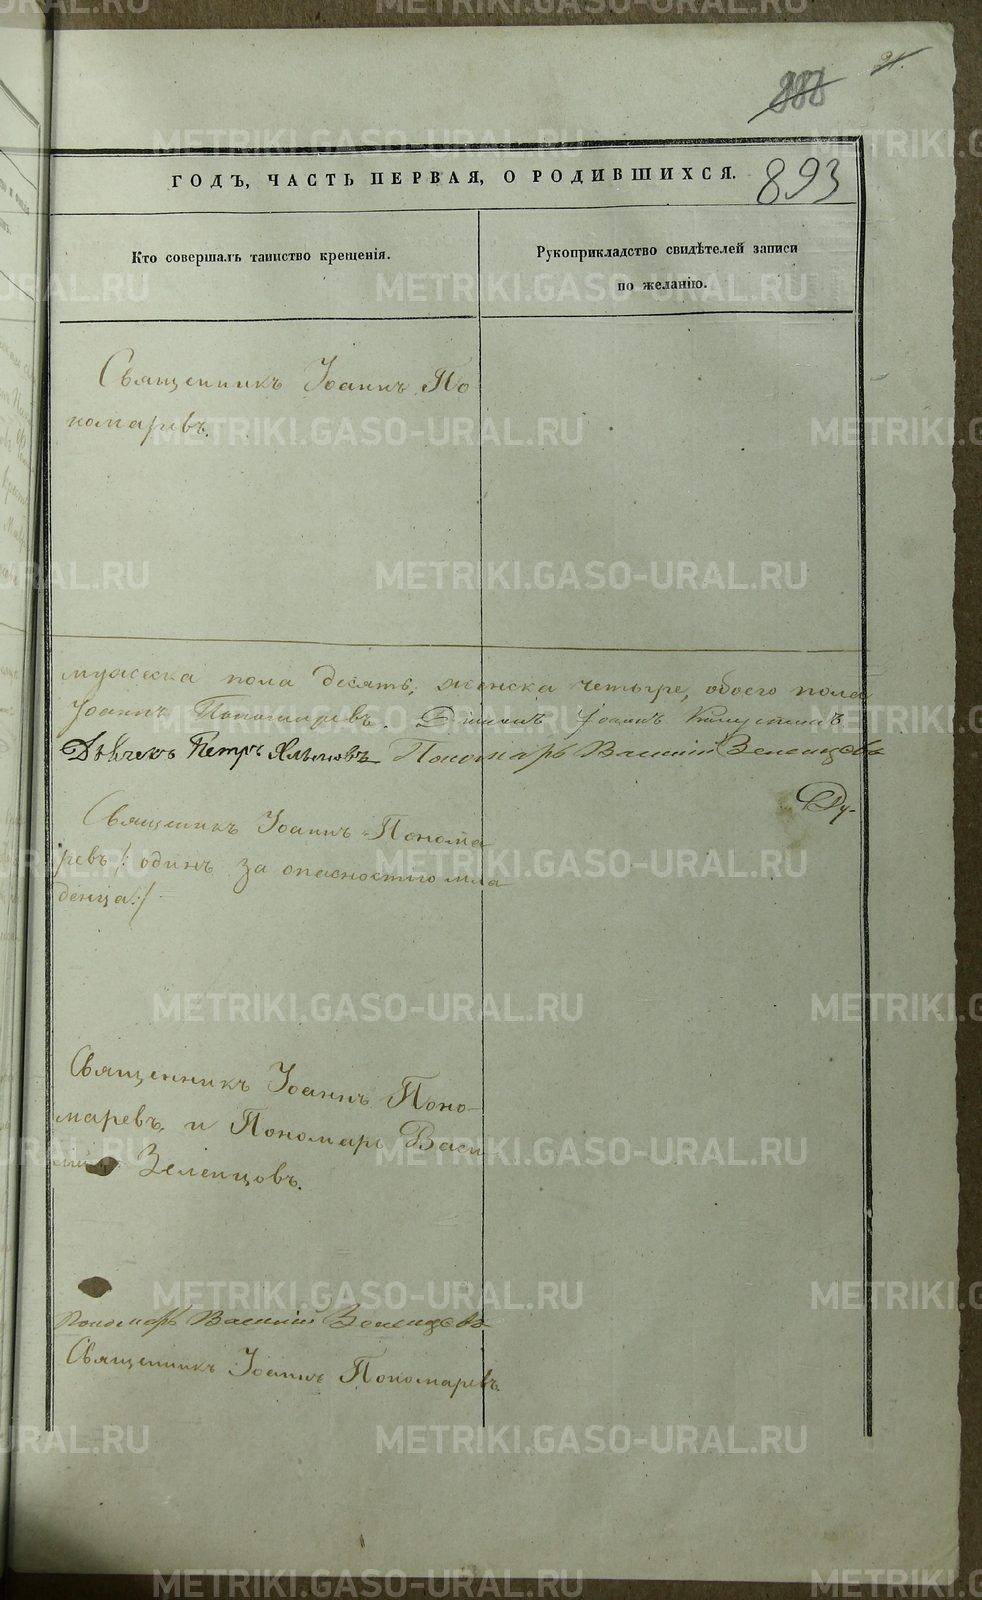 ГОДЪ, ЧАСТЬ ПЕРВАЯ, О РОДИВШИХСЯ. 893
Кто совершалъ таинство крещенія.
Рукоприкладство свидѣтелей записи
по желанію.
Священникъ Іоаннъ По
номаревъ.
мужеска пола десять, женска четыре, обоего пола
Іоаннъ Пономаревъ. Діаконъ Іоаннъ
Дьячекъ Петръ Пономарь Василій Зеленцовъ
Ду-
Священникъ Іоаннъ Понома
ревъ /: одинъ за опасностію мла
денца :/
Священникъ Іоаннъ Поно-
маревъ и Пономарь Васи
лій Зеленцовъ.
Пономарь Василій Зеленцовъ
Священникъ Іоаннъ Пономаревъ.
METRIKI.GASO-URAL.RU